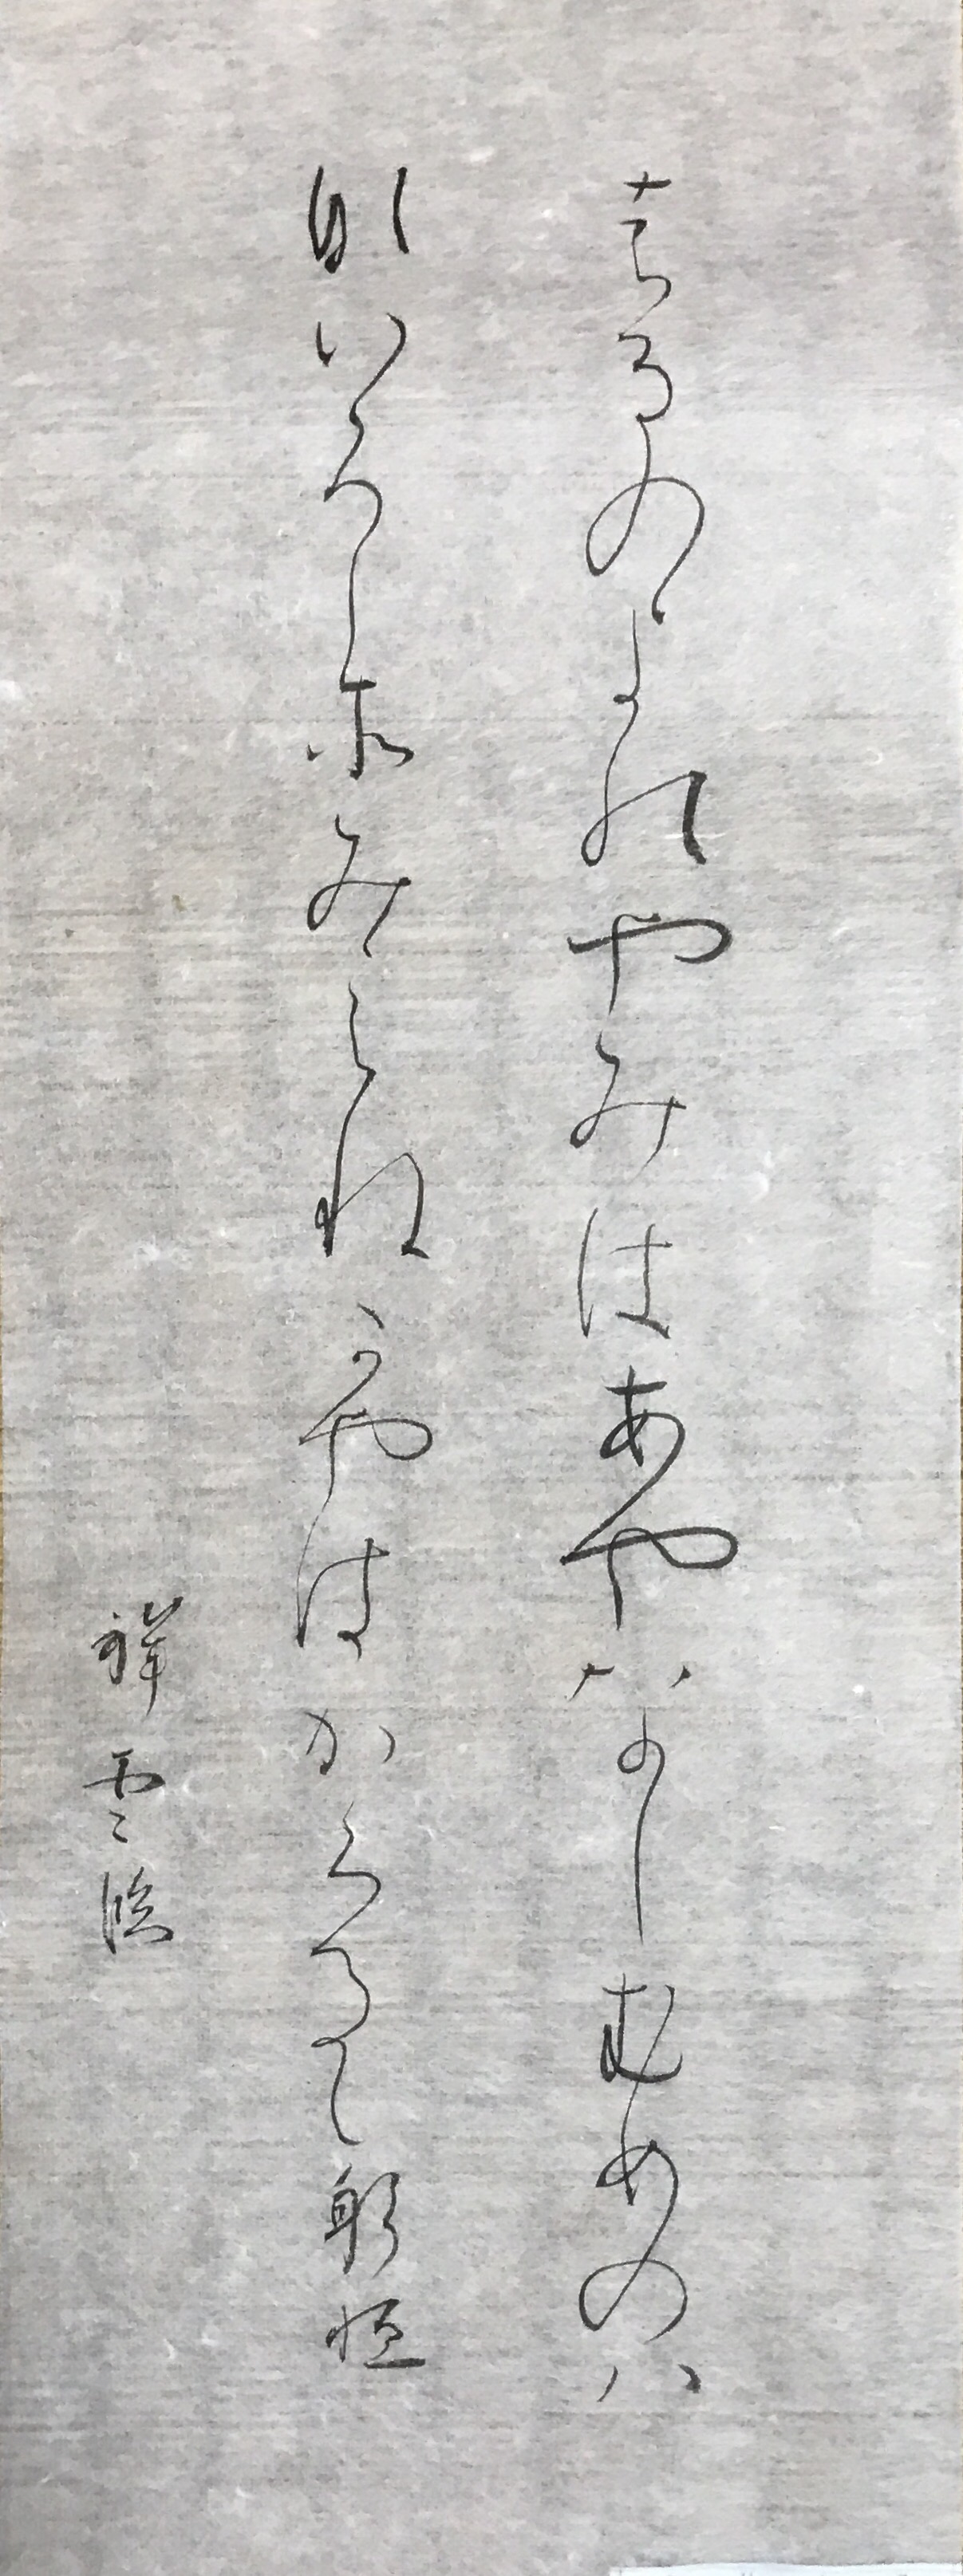 はるのよのやみはあやなしむめのは
那いろこそみえねかやはかくるる 躬恒
祥雲臨